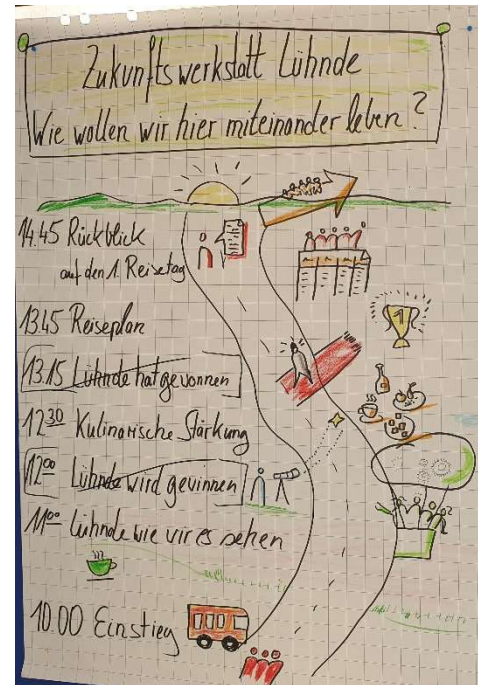 Zukunftswerkstatt Lühnde
Wie wollen wir hier miteinander leben?
14.45 Rückblick
auf den 1. Reisetag
13.45 Reiseplan
13.15 Lühnde hat gewonnen
12 30 Kulinarische Stärkung
12 00 Lühnde wird gewinnen
11 00 Lühnde wie wir es sehen
10.00 Einstieg
1